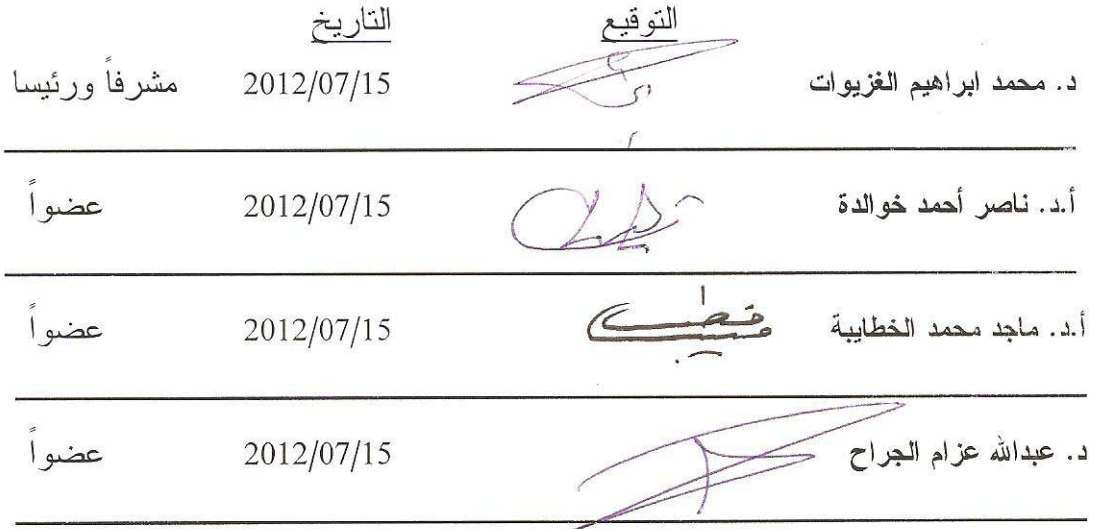 التوقيع التاريخ
د. محمد ابراهيم الغزيوات 2012/07/15 مشرفاً ورئيسا
أ.د. ناصر أحمد خوالدة 2012/07/15 عضواً
أ.د. ماجد محمد الخطايبة 2012/07/15 عضواً
د. عبدالله عزام الجراح 2012/07/15 عضواً